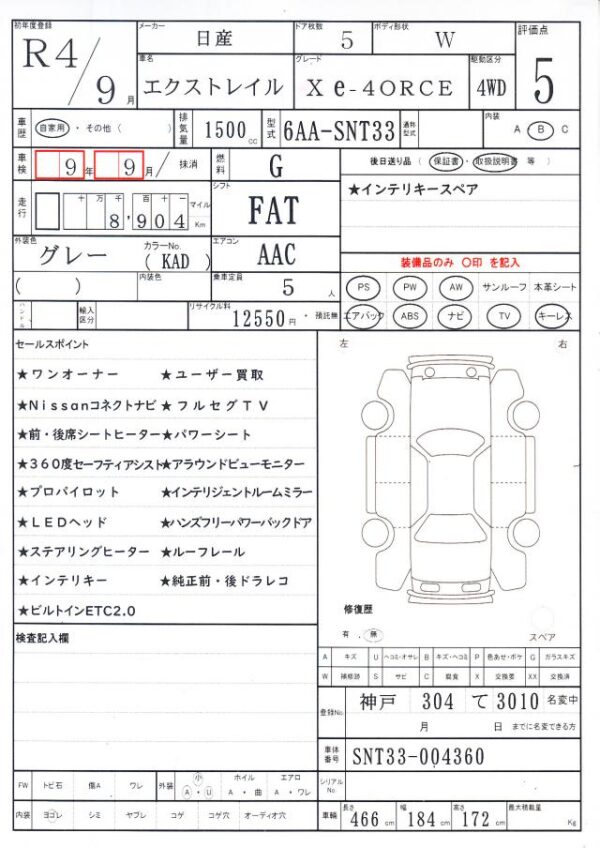 初年度登録 R4/9月
メーカー 日産
ドア枚数 5
ボディ形状 W
評価点 5
車名 エクストレイル
グレード X e-4ORCE
駆動区分 4WD
車歴 自家用・その他（ ）
排気量 1500cc
型式 6AA-SNT33
通称型式
内装 A B C
車検 9年 9月/抹消
燃料 G
後日送り品（保証書・取扱説明書 等）
★インテリキースペア
走行 十 万 千 百 十 一
8,904 マイル Km
シフト FAT
外装色 グレー
カラーNo. (KAD)
エアコン AAC
装備品のみ 〇印 を記入
( )
内装色
乗車定員 5人
PS PW AW サンルーフ 本革シート
エアバック ABS ナビ TV キーレス
ハンドル
輸入区分
リサイクル料 12550円・預託無
セールスポイント
左 右
★ワンオーナー ★ユーザー買取
★Nissanコネクトナビ ★フルセグTV
★前・後席シートヒーター ★パワーシート
★360度セーフティアシスト ★アラウンドビューモニター
★プロパイロット ★インテリジェントルームミラー
★LEDヘッド ★ハンズフリーパワーバックドア
★ステアリングヒーター ★ルーフレール
★インテリキー ★純正前・後ドラレコ
★ビルトインETC2.0
修復歴
有．無
スペア
検査記入欄
A キズ U ヘコミ・オサレ B キズ・ヘコミ P 色あせ・ボケ G ガラスキズ
W 補修跡 S サビ C 腐食 X 交換要 XX 交換済
登録No. 神戸 304 て 3010 名変中
月 日 までに名変できる方
車体番号 SNT33-004360
FW トビ石 傷A ワレ
外装 小 A・U
ホイル A・曲
エアロ A・ワレ
シリアルNo
内装 ヨゴレ シミ ヤブレ コゲ コゲ穴 オーディオ穴
車輌 長さ 466cm 幅 184cm 高さ 172cm 最大積載量 Kg